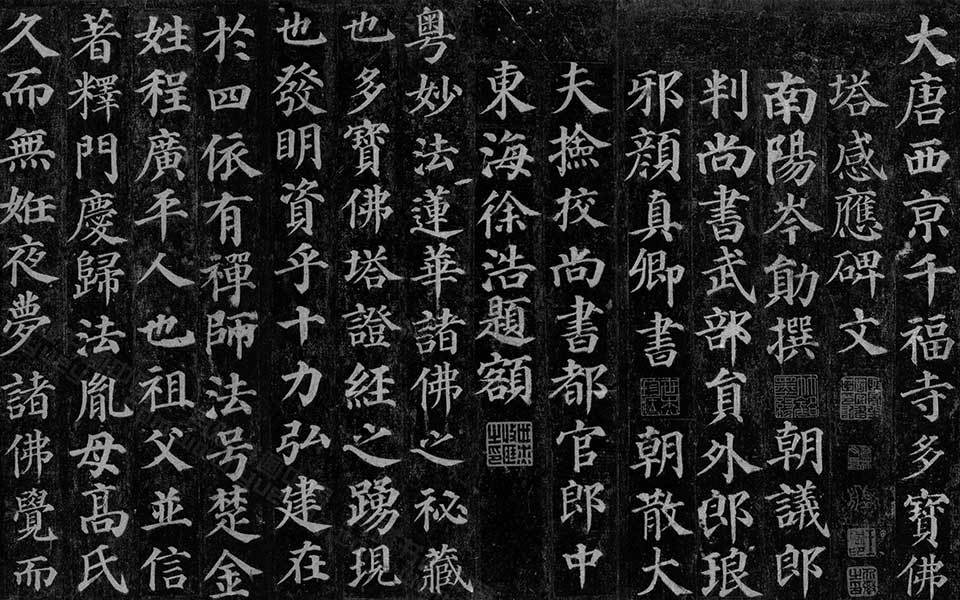 大唐西京千福寺多寶佛
塔感應碑文
南陽岑勛撰 朝議郎
判尚書武部員外郎琅
邪顏真卿書 朝散大
夫撿挍尚書都官郎中
東海徐浩題額
粤妙法蓮華諸佛之祕藏
也多寶佛塔證經之踴現
也發明資乎十力弘建在
於四依有禪師法号楚金
姓程廣平人也祖父並信
著釋門慶歸法胤母高氏
久而無姙夜夢諸佛覺而